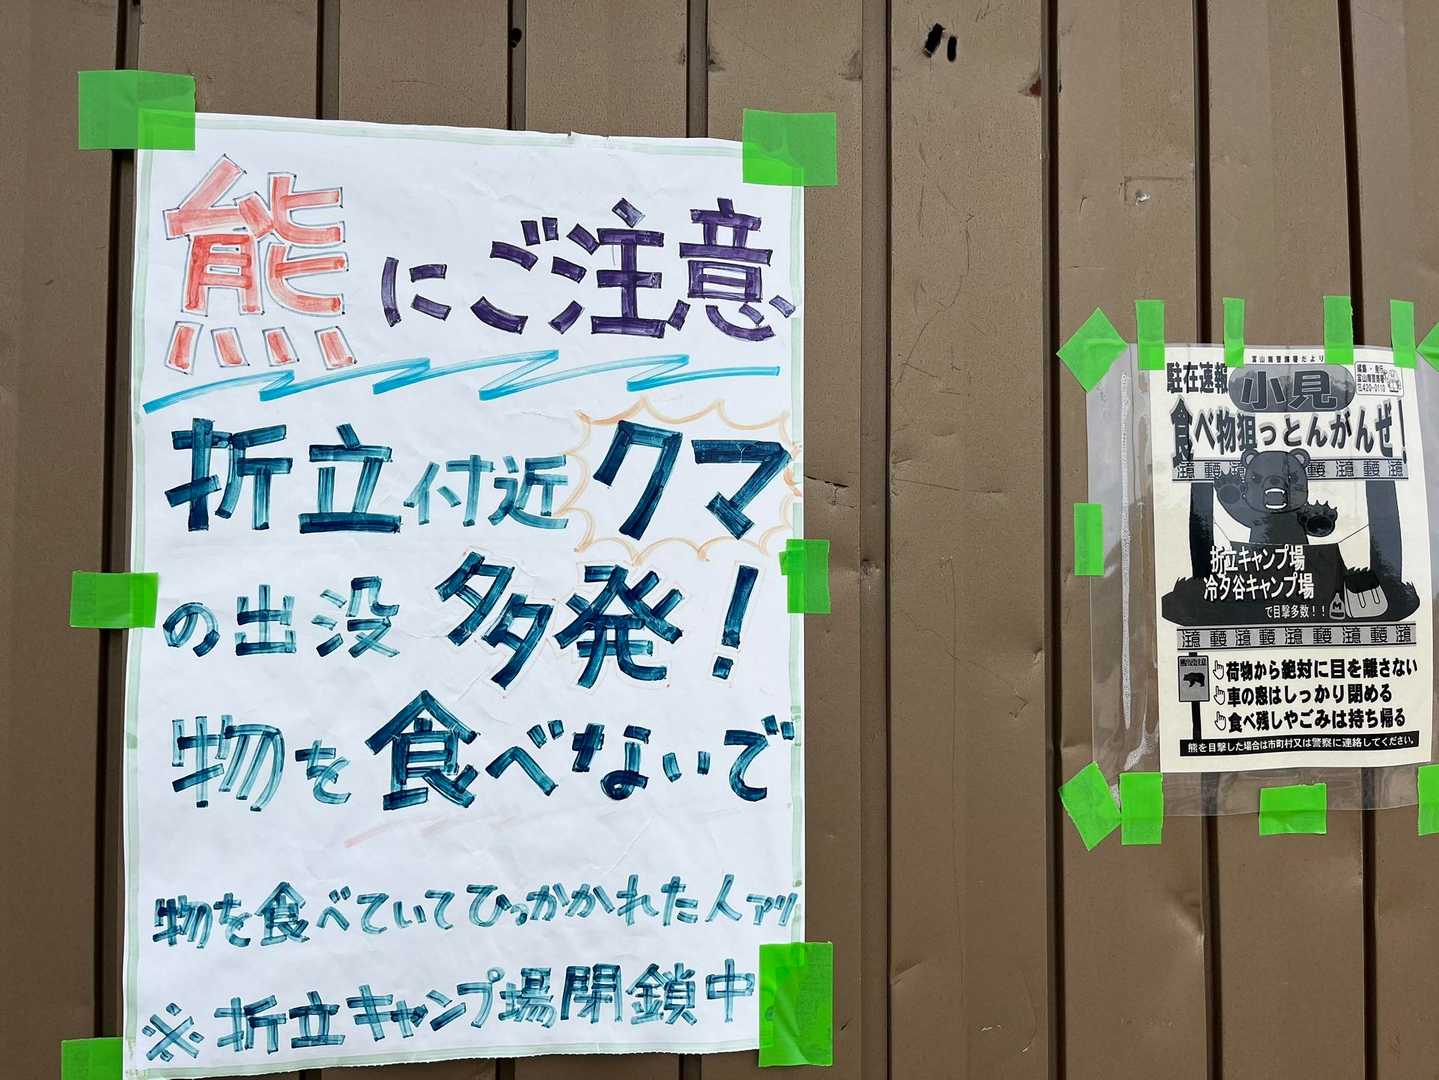 熊にご注意
折立付近クマ
の出没多発!
物を食べないで
物を食べていてひっかかれた人アリ
※折立キャンプ場閉鎖中
富山南警察署だより
駐在速報
小見
編集・発行
富山南警察署
食べ物狙っとんがんぜ!
注意 要注意 要注意
折立キャンプ場
冷夕谷キャンプ場
で目撃多数!!
荷物から絶対に目を離さない
車の窓はしっかり閉める
食べ残しやごみは持ち帰る
熊を目撃した場合は市町村又は警察に連絡してください。